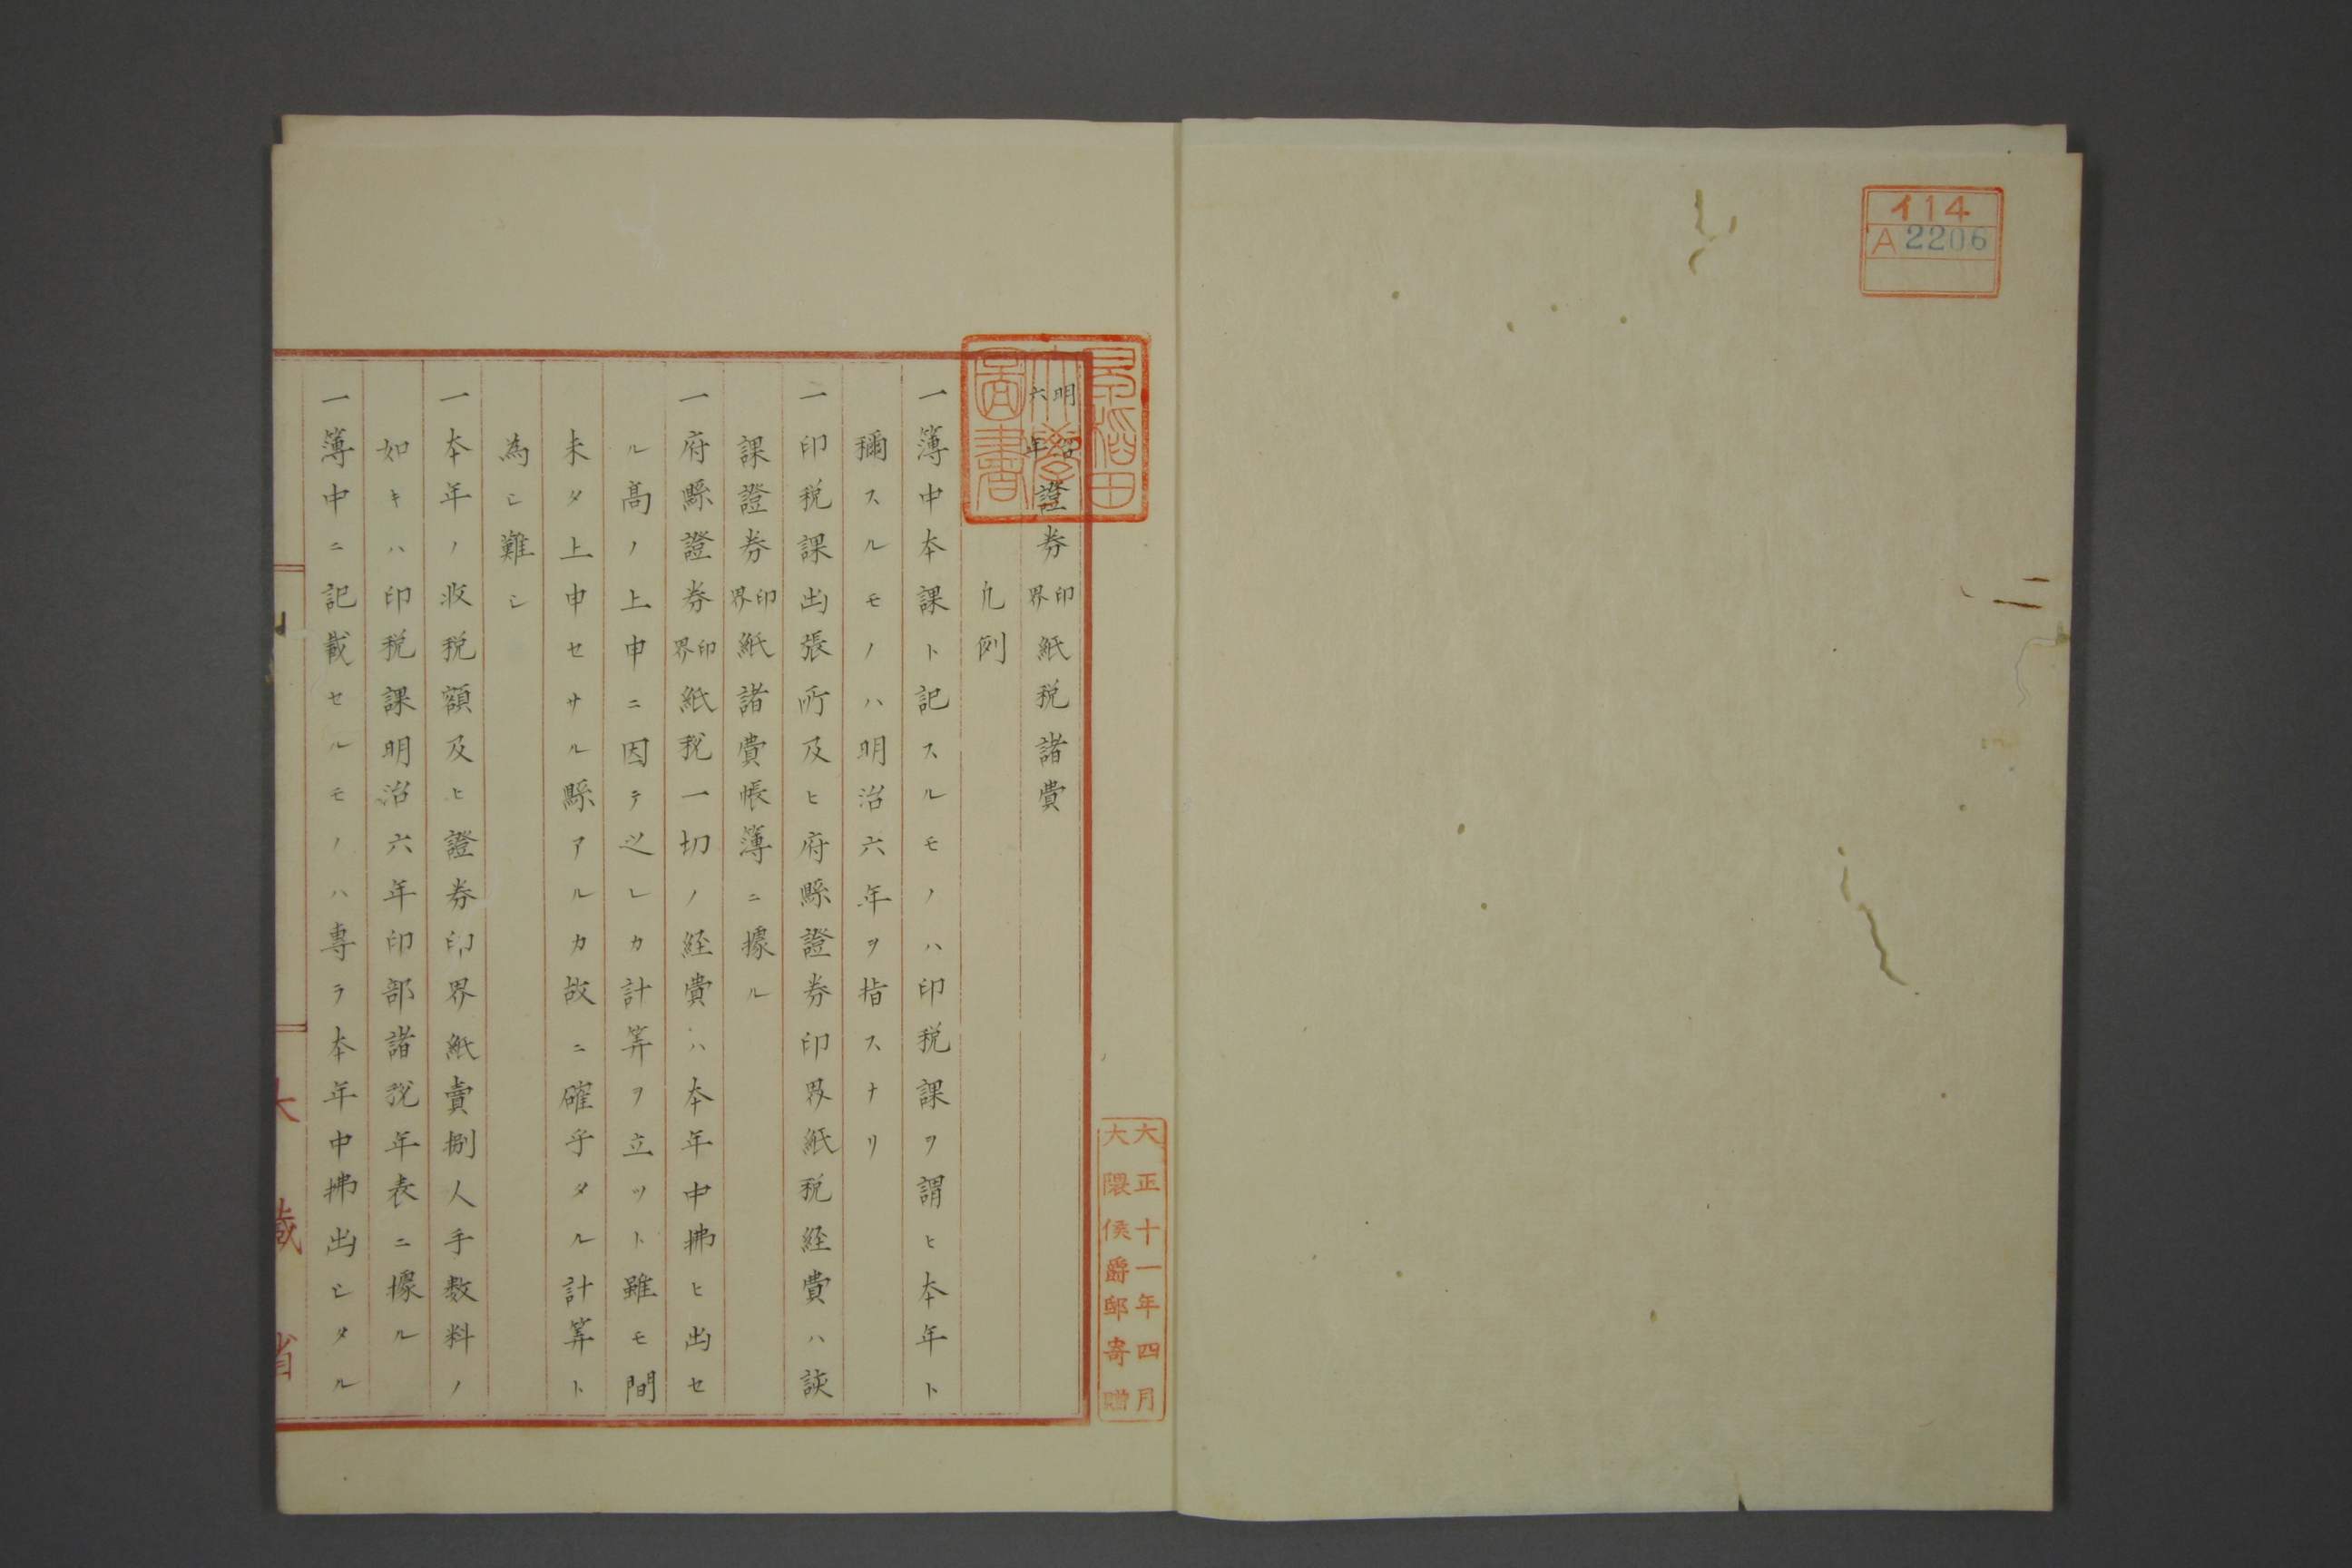 イ14
A 2206
早稲田大學圖書
明治六年證券印界紙税諸費
凢例
一簿中本課ト記スルモノハ印税課ヲ謂ヒ本年ト
稱スルモノハ明治六年ヲ指スナリ
一印税課出張所及ヒ府縣證券印界紙税経費ハ該
課證券印界紙諸費帳簿ニ據ル
一府縣證券印界紙税一切ノ経費ハ本年中拂ヒ出セ
ル高ノ上申ニ因テ之レカ計算ヲ立ツト雖モ間
未タ上申セサル縣アルカ故ニ確乎タル計算ト
為シ難シ
一本年ノ収税額及ヒ證券印界紙賣捌人手数料ノ
如キハ印税課明治六年印部諸税年表ニ據ル
一簿中ニ記載セルモノハ専ラ本年中拂出シタル
大藏省
大正十一年四月
大隈侯爵邸寄贈